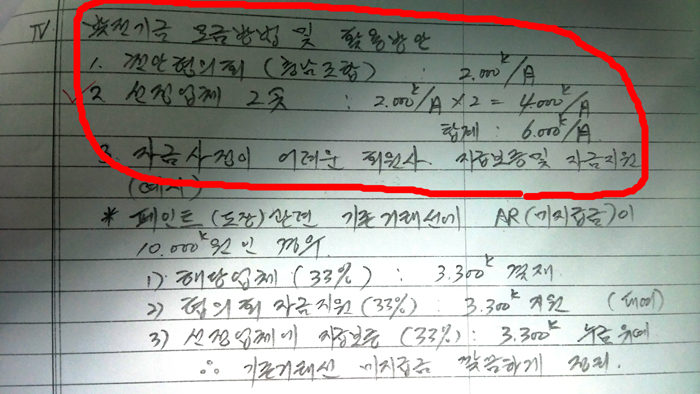 IV. 발전기금 모금방법 및 활용방안
1. 천안협의회 (충남조합) : 2.000ᵏ/A
✓2. 선정업체 2곳 : 2.000ᵏ/A × 2 = 4.000ᵏ/A
합계 : 6.000ᵏ/A
3. 자금사정이 어려운 회원사. 지급보증 및 자금지원
(예시)
* 페인트(도장)관련 기존거래선에 AR(미지급금)이
10.000ᵏ원인 경우.
1) 해당업체 (33%) : 3.300ᵏ 결재
2) 협의회 자금지원 (33%) : 3.300ᵏ 지원 (대여)
3) 선정업체에 지급보증 (33%) : 3.300ᵏ
∴ 기존거래선 미지급금 깔끔하게 정리.